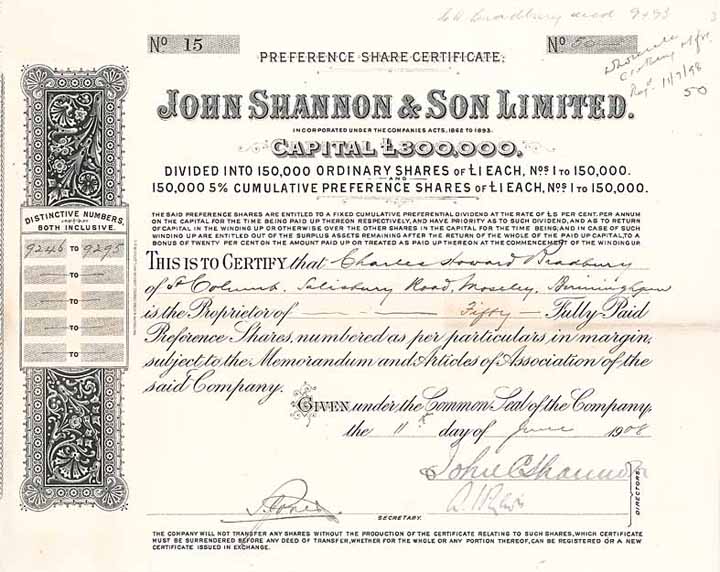 9293
No 15
No 50
PREFERENCE SHARE CERTIFICATE.
11/7/98
50
JOHN SHANNON & SON LIMITED.
INCORPORATED UNDER THE COMPANIES ACTS, 1862 TO 1893.
CAPITAL £300,000,
DIVIDED INTO 150,000 ORDINARY SHARES OF £1 EACH, Nos 1 TO 150,000.
AND
150,000 5% CUMULATIVE PREFERENCE SHARES OF £1 EACH, Nos 1 TO 150,000.
THE SAID PREFERENCE SHARES ARE ENTITLED TO A FIXED CUMULATIVE PREFERENTIAL DIVIDEND AT THE RATE OF £5 PER CENT. PER ANNUM
ON THE CAPITAL FOR THE TIME BEING PAID UP THEREON RESPECTIVELY, AND HAVE PRIORITY AS TO SUCH DIVIDEND, AND AS TO RETURN
OF CAPITAL IN THE WINDING UP OR OTHERWISE OVER THE OTHER SHARES IN THE CAPITAL FOR THE TIME BEING; AND IN CASE OF SUCH
WINDING UP ARE ENTITLED OUT OF THE SURPLUS ASSETS REMAINING AFTER THE RETURN OF THE WHOLE OF THE PAID UP CAPITAL, TO A
BONUS OF TWENTY PER CENT ON THE AMOUNT PAID UP OR TREATED AS PAID UP THEREON AT THE COMMENCEMENT OF THE WINDING UP
DISTINCTIVE NUMBERS,
BOTH INCLUSIVE.
9246 TO 9295
TO
TO
TO
TO
THIS IS TO CERTIFY that Charles Howard Bradbury
of St Columb, Salisbury Road, Moseley, Birmingham
is the Proprietor of Fifty Fully-Paid
Preference Shares, numbered as per particulars in margin,
subject to the Memorandum and Articles of Association of the
said Company.
GIVEN under the Common Seal of the Company,
the 11th day of June 1908
John C Shannon
DIRECTORS
SECRETARY.
THE COMPANY WILL NOT TRANSFER ANY SHARES WITHOUT THE PRODUCTION OF THE CERTIFICATE RELATING TO SUCH SHARES, WHICH CERTIFICATE
MUST BE SURRENDERED BEFORE ANY DEED OF TRANSFER, WHETHER FOR THE WHOLE OR ANY PORTION THEREOF, CAN BE REGISTERED OR A NEW
CERTIFICATE ISSUED IN EXCHANGE.